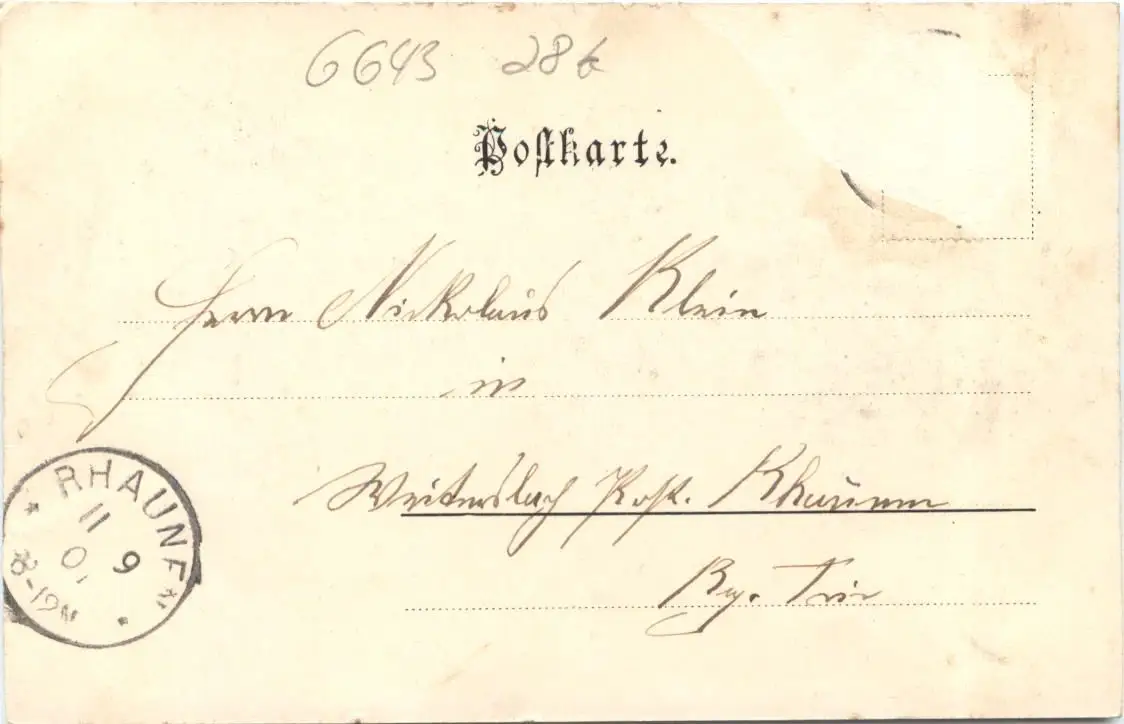 6643 286
Postkarte.
Herrn Nickolaus Klein
in
Weitersbach Post. Rhaunen
Bz. Trier
RHAUNEN
11 9
01
8-12N